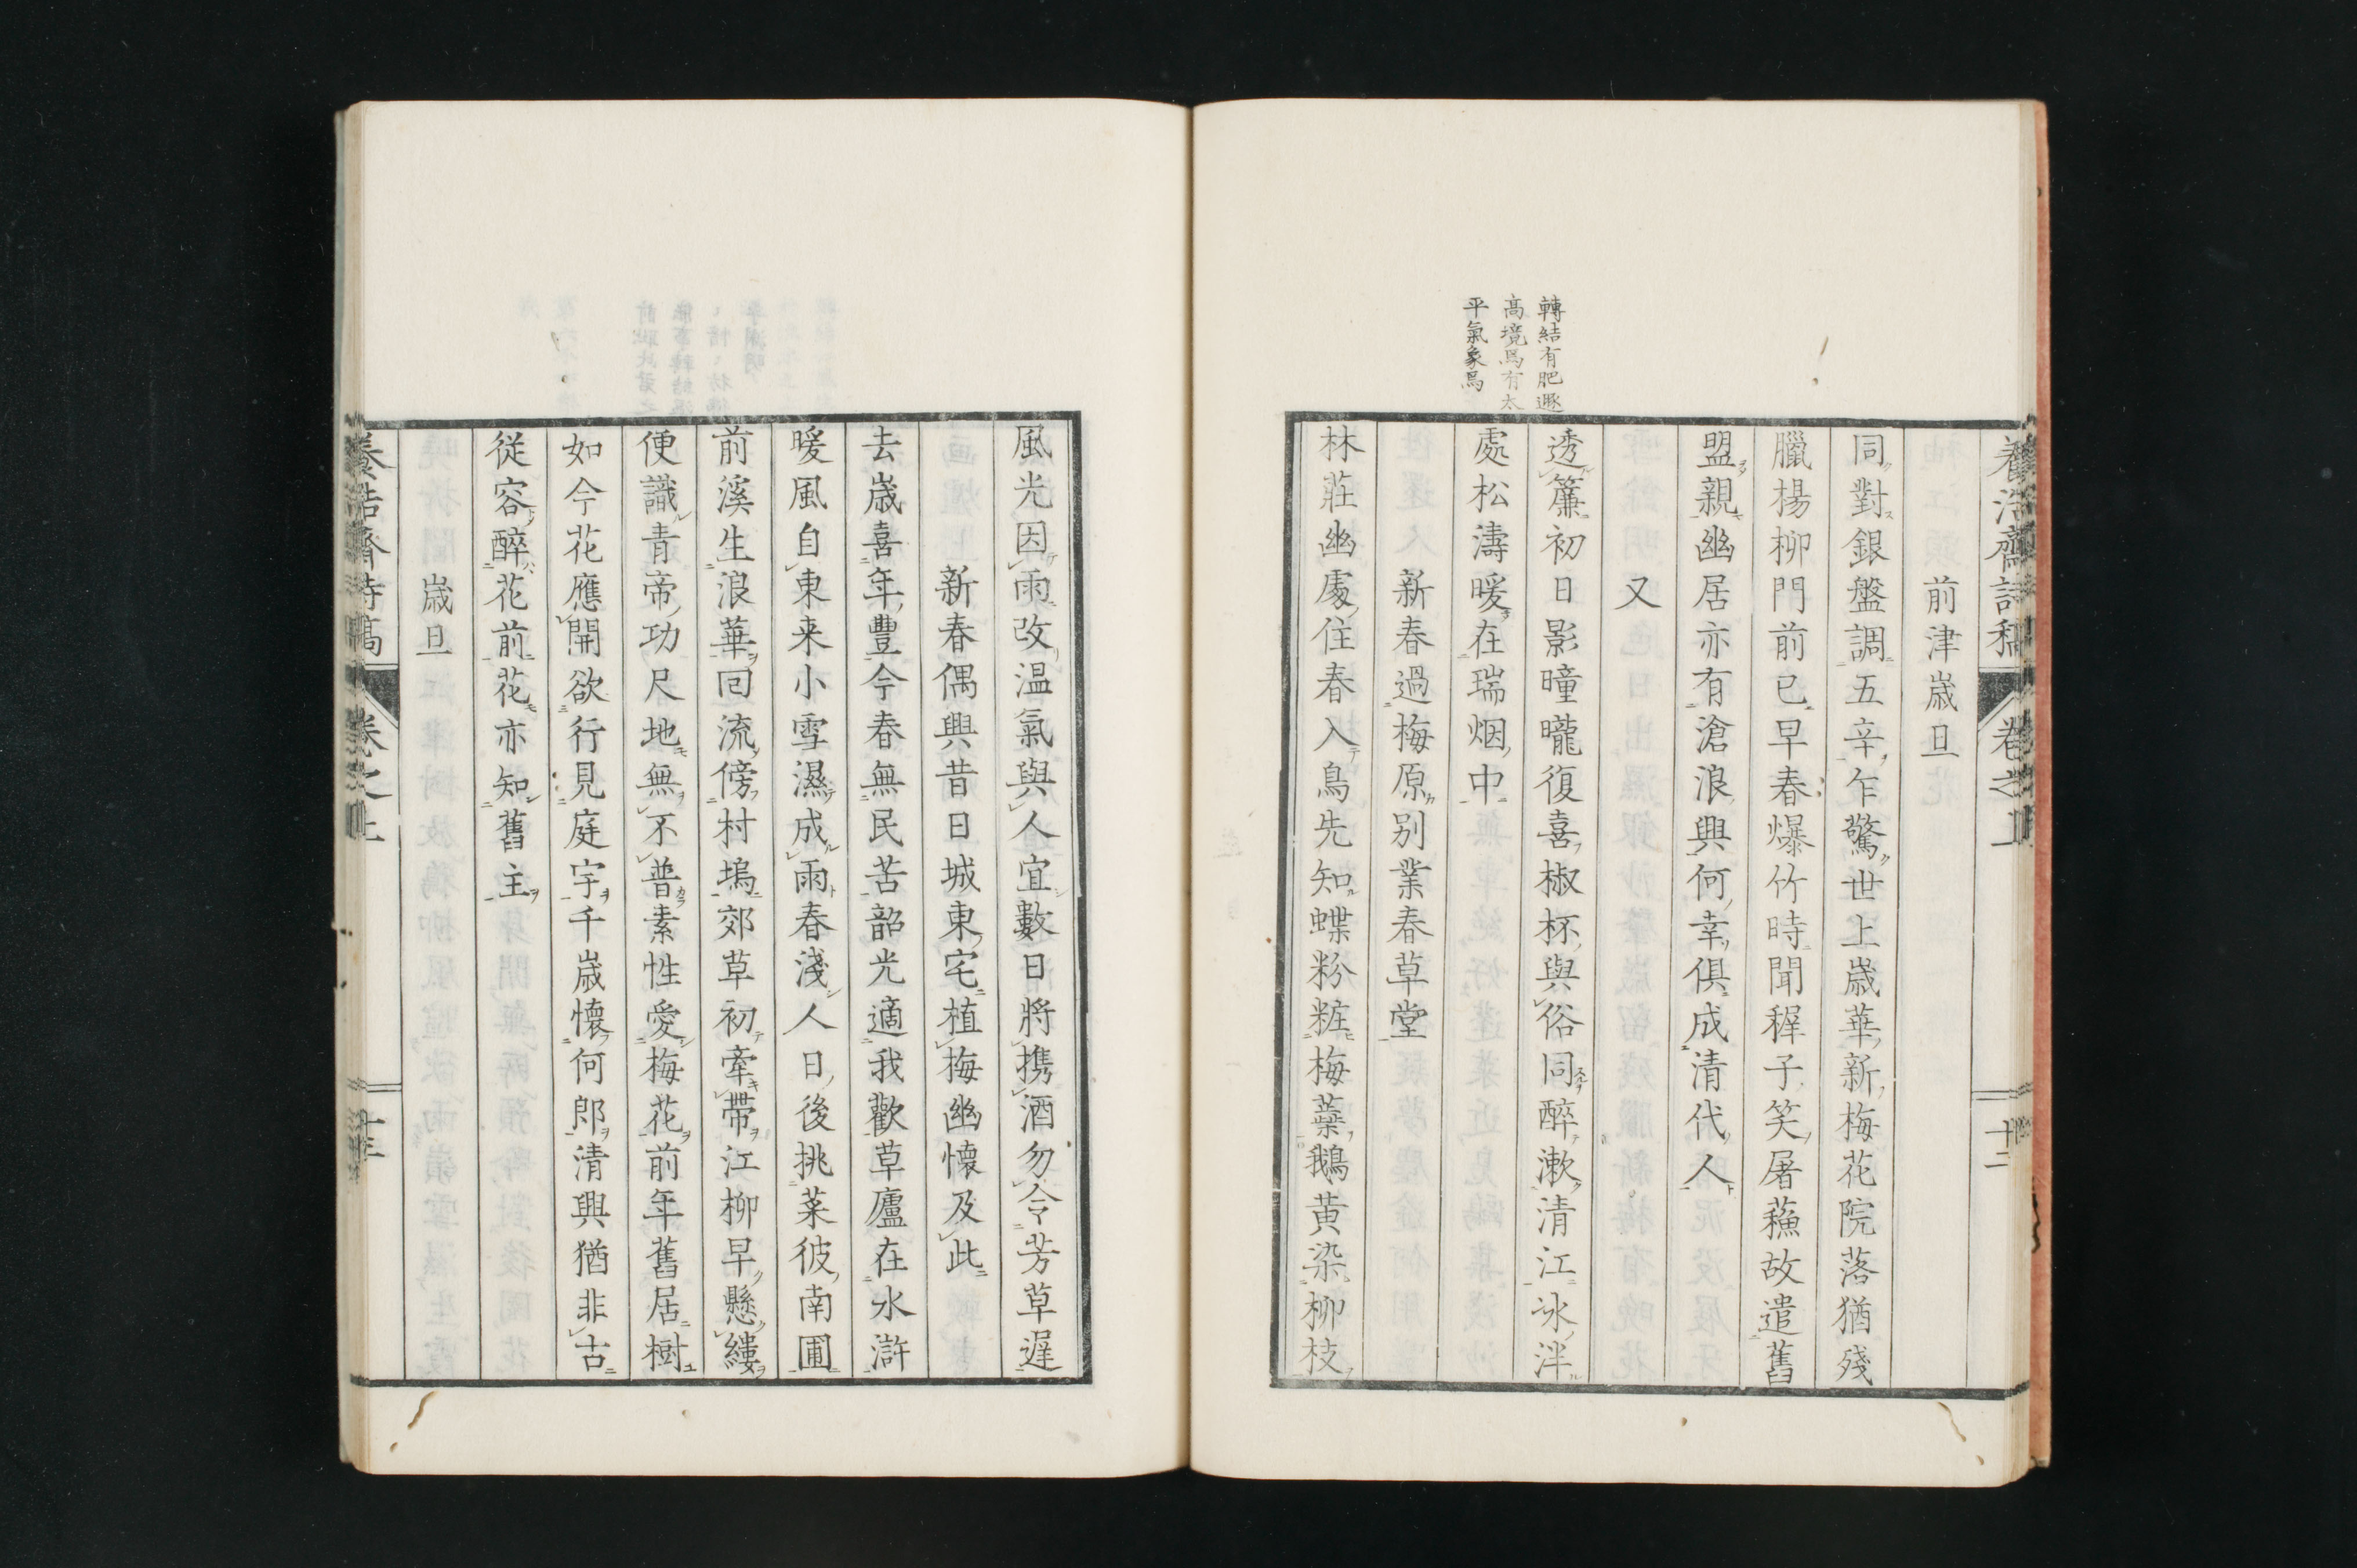 養浩齋詩稿 卷之上 十二
前津歳旦
同對銀盤調五辛乍驚世上歳華新梅花院落猶殘
臘楊柳門前已早春爆竹時聞稺子笑屠蘓故遣舊
盟親幽居亦有滄浪興何幸俱成清代人
又
透簾初日影曈曨復喜椒杯與俗同醉漱清江冰泮
處松濤暖在瑞烟中
新春過梅原別業春草堂
林莊幽處住春入鳥先知蝶粉粧梅蘂鵝黄染柳枝
轉結有肥遯
高境焉有太
平氣象焉
風光因雨改温氣與人宜數日將携酒勿令芳草遲
新春偶興昔日城東宅植梅幽懐及此
去歳喜年豐今春無民苦韶光適我歡草廬在水滸
暖風自東来小雪濕成雨春淺人日後挑菜彼南圃
前溪生浪華回流傍村塢郊草初牽帶江柳早懸縷
便識青帝功尺地無不普素性愛梅花前年舊居樹
如今花應開欲行見庭宇千歳懷何郎清興猶非古
従容醉花前花亦知舊主
歳旦
養浩齋詩稿 卷之上 十三